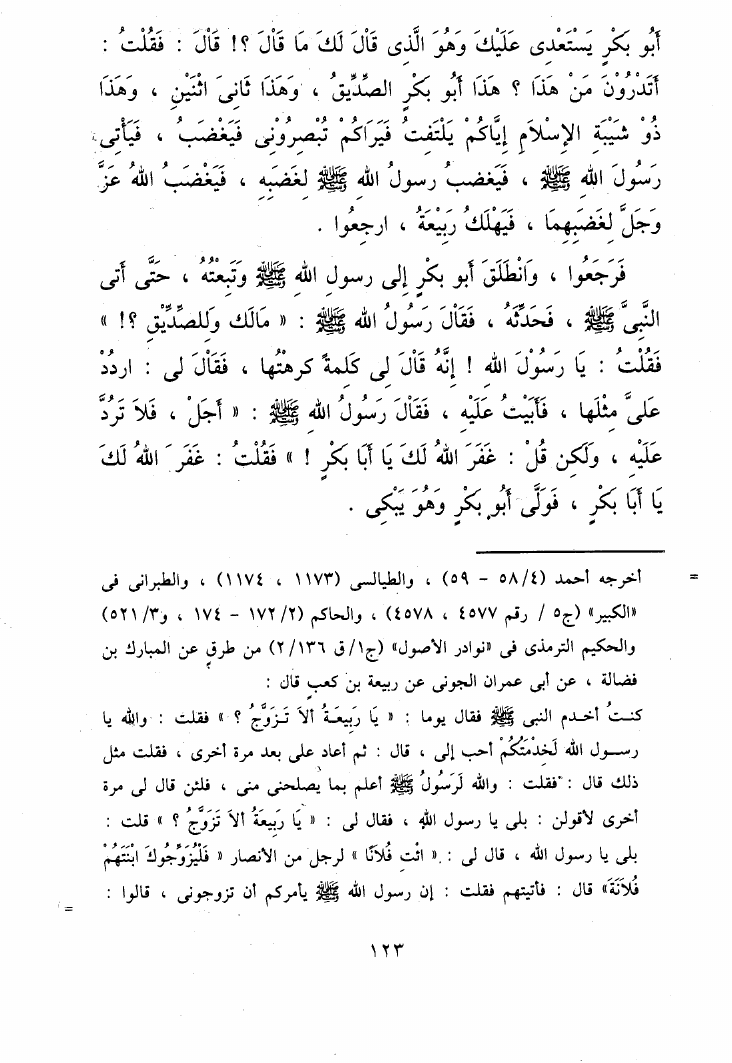 أَبُو بَكْرٍ يَسْتَعْدِى عَلَيْكَ وَهُوَ الَّذِى قَالَ لَكَ مَا قَالَ ؟! قَالَ : فَقُلْتُ :
أَتَدْرُونَ مَنْ هَذَا ؟ هَذَا أَبُو بَكْرٍ الصِّدِّيقُ ، وَهَذَا ثَانِىَ اثْنَيْنِ ، وَهَذَا
ذُو شَيْبَةِ الإِسْلَامِ إِيَّاكُمْ يَلْتَفِتُ فَيَرَاكُمْ تُبْصِرُونِى فَيَغْضَبُ ، فَيَأْتِى
رَسُولَ اللهِ ﷺ ، فَيَغضَبُ رسولُ اللهِ ﷺ لِغَضَبِهِ ، فَيَغْضَبُ اللهُ عَزَّ
وَجَلَّ لِغَضَبِهِمَا ، فَيَهْلَكُ رَبِيْعَةُ ، ارجِعُوا .
فَرَجَعُوا ، وَانْطَلَقَ أَبو بَكْرٍ إِلى رسولِ اللهِ ﷺ وَتَبِعْتُهُ ، حَتَّى أَتى
النَّبِىَّ ﷺ ، فَحَدَّثَهُ ، فَقَالَ رَسُولُ اللهِ ﷺ : « مَالَكَ وَلِلصِّدِّيْقِ ؟! »
فَقُلْتُ : يَا رَسُوْلَ اللهِ ! إِنَّهُ قَالَ لِى كَلِمَةً كَرِهْتُها ، فَقَالَ لى : اردُدْ
عَلىَّ مِثْلَها ، فَأَبَيْتُ عَلَيْهِ ، فَقَالَ رَسُولُ اللهِ ﷺ : « أَجَلْ ، فَلاَ تَرُدَّ
عَلَيْهِ ، وَلَكِن قُلْ : غَفَرَ اللهُ لَكَ يَا أَبَا بَكْرٍ ! » فَقُلْتُ : غَفَرَ اللهُ لَكَ
يَا أَبَا بَكْرٍ ، فَوَلَّى أَبُو بَكْرٍ وَهُوَ يَبْكِى .
= أخرجه أحمد (٥٨/٤ - ٥٩) ، والطيالسي (١١٧٣ ، ١١٧٤) ، والطبرانى فى
«الكبير» (ج٥ / رقم ٤٥٧٧ ، ٤٥٧٨) ، والحاكم (١٧٢/٢ - ١٧٤ ، و٥٢١/٣)
والحكيم الترمذى فى «نوادر الأصول» (ج١/ق ٢/١٣٦) من طرقٍ عن المبارك بن
فضالة ، عن أبى عمران الجونى عن ربيعة بن كعبٍ قال :
كنتُ أخدم النبى ﷺ فقال يوما : « يَا رَبِيعَةُ أَلاَ تَزَوَّجُ ؟ » فقلت : والله يا
رسول الله لَخِدْمَتُكُمْ أحب إلى ، قال : ثم أعاد على بعد مرة أخرى ، فقلت مثل
ذلك قال : فقلت : والله لَرَسُولُ ﷺ أعلم بما يصلحنى منى ، فلئن قال لى مرة
أخرى لأقولن : بلى يا رسول الله ، فقال لى : « يَا رَبِيعَةُ أَلاَ تَزَوَّجُ ؟ » قلت :
بلى يا رسول الله ، قال لى : « ائْتِ فُلاَنًا » لرجل من الأنصار « فَلْيُزَوِّجُوكَ ابْنَتَهُمْ
فُلاَنَةَ» قال : فأتيتهم فقلت : إن رسول الله ﷺ يأمركم أن تزوجونى ، قالوا : =
١٢٣